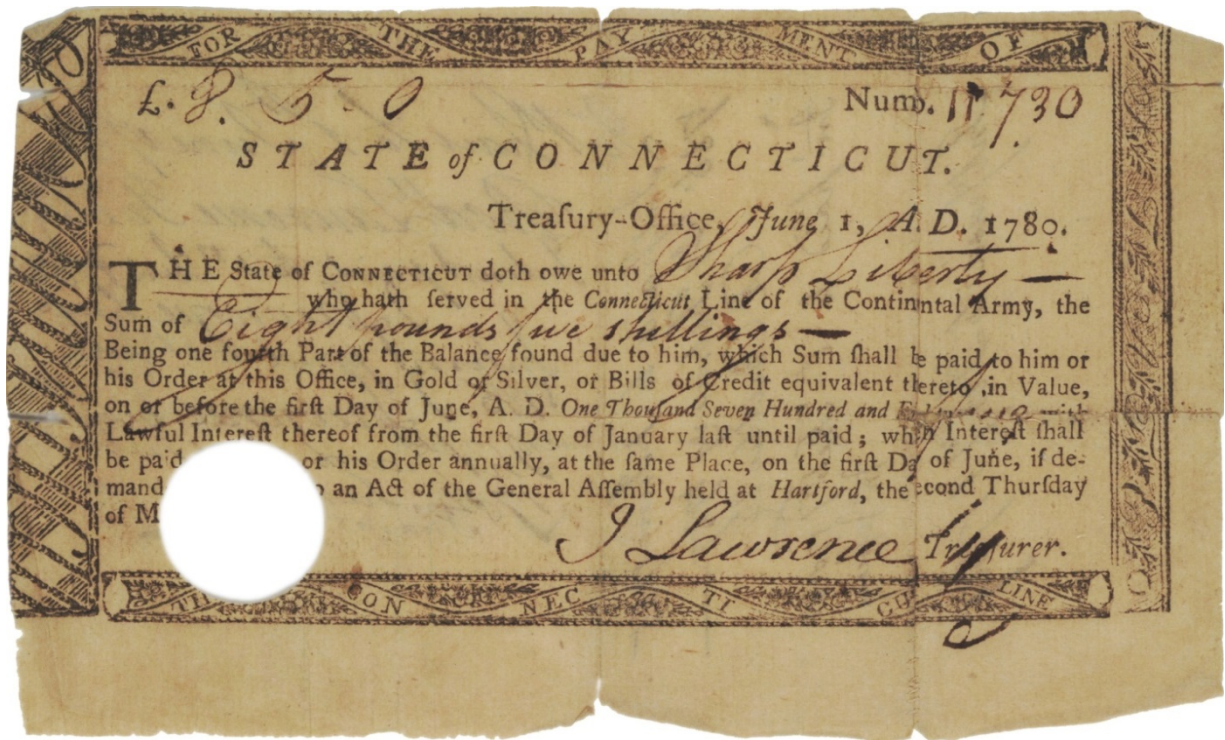 FOR THE PAYMENT OF
£. 8. 5-0 Numb. 11,730
STATE of CONNECTICUT.
Treaſury-Office, June 1, A. D. 1780.
THE State of CONNECTICUT doth owe unto Sharp Liberty—
who hath ſerved in the Connecticut Line of the Continntal Army, the
Sum of Eight pounds five shillings—
Being one fourth Part of the Balance found due to him, which Sum ſhall be paid to him or
his Order at this Office, in Gold or Silver, or Bills of Credit equivalent thereto in Value,
on or before the firſt Day of June, A. D. One Thouſand Seven Hundred and with
Lawful Intereſt thereof from the firſt Day of January laſt until paid; whh Intereſt ſhall
be paid or his Order annually, at the ſame Place, on the firſt Da of June, if de-
mand an Act of the General Aſſembly held at Hartford, the econd Thurſday
of M
J Lawrence Treaſurer.
THE CONNECTICUT LINE